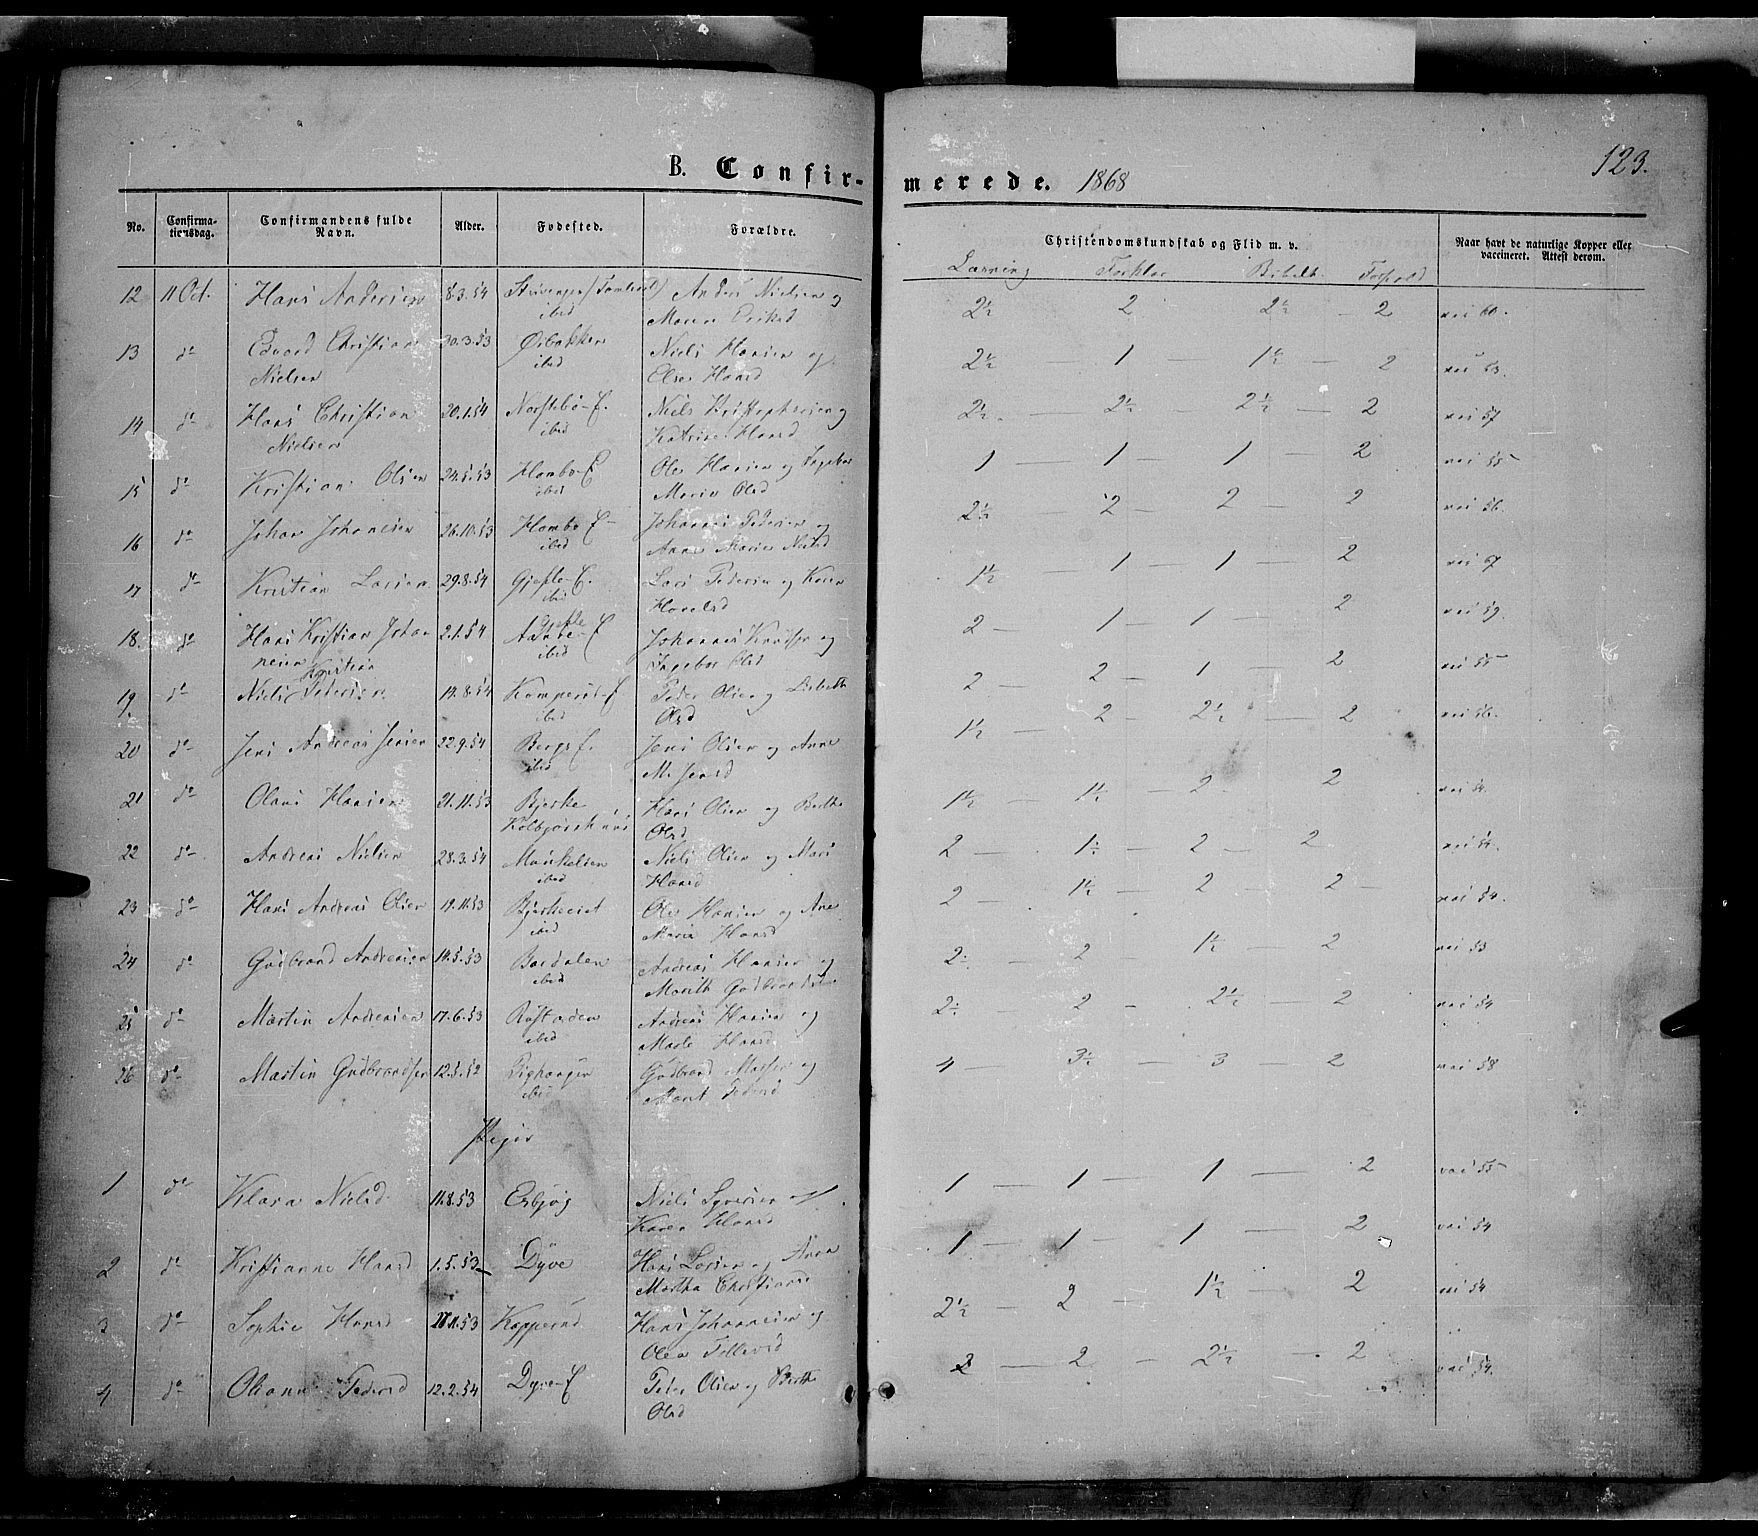 B. Confir-
merede. 1868
123.
No.
Confirma-
tionsdag.
Confirmandens fulde
Navn.
Alder.
Fødested.
Forældre.
Christendomskundskab og Flid m. v.
Læsning Forklar Bibelh. Forhold
Naar havt de naturlige Kopper eller
vaccineret. Attest derom.
12 11 Oct. Hans Andersen 8.3.54 Anders Nielsen og 2½ 2 2½ 2 vac 60.
ibid Maren Eriksd
13 do Edvard Christian 30.3.53 Øibakken Niels Hansen og 2½ 1 1½ 2 vac 53.
Nielsen ibid Else Hansd
14 do Hans Christian 20.1.54 Niels Kristophersen og 2½ 2½ 2½ 2 vac 57
Nielsen ibid Katrine Hansd
15 do Kristian Olsen 24.5.53 Hambo-E Ole Hansen og Ingebor 1 1 1 2 vac 55
ibid Marie Olsd
16 do Johan Johansen 26.10.53 Hambo E Johannes Pedersen og 2½ 2 2 2 vac 56.
ibid Anne Marie Nielsd
17 do Kristian Larsen 29.8.54 Gjefle-E. Lars Pedersen og Karen 1½ 1 1 2 vac 67
ibid
18. do Hans Kristian Johan 2.1.54 Johannes og 2 1 1 2 vac 59.
nesen ibid Ingebor Olsd
19. do Niels Kristian Pedersen 14.8.54 Kamperud-E Peder Olsen og Lisbeth 2 2 1 2 vac 55
ibid Olsd
20 do Jens Andreas Jensen 22.9.54 Bergs E. Jens Olsen og Anne 1½ 2 2½ 2 vac 56.
ibid M. Jensd
21 do Olaus Hansen 21.11.53 Bjerke Hans Olsen og Berthe 1½ 1½ 2 2 vac 54.
Kolbjørnshuus Olsd
22 do Andreas Nielsen 28.3.54 Niels Olsen og Mari 2 1½ 2 2 vac 54.
ibid Hansd
23 do Hans Andreas Olsen 19.11.53 Bjerkeeiet Ole Hansen og Ane 2 1½ 2 2 vac 54.
ibid Marie Hansd
24 do Gudbrand Andreasen 14.5.53 Andreas Hansen og 2 2 1½ 2 vac 53
ibid Marith Gudbrandsd
25 do Martin Andreasen 17.6.53 Andreas Hansen og 2 2 2½ 2 vac 54
ibid Marte Hansd
26 do Martin Gudbrandsen 12.5.52 Gudbrand og 4 3½ 3 2 vac 58
ibid Marit Pedersd
Piger
1 do Klara Nielsd. 11.8.53 Esbjøg Niels Syversen og 1 1 1 2 vac 55
Karen Hansd
2 do Kristianne Hansd 1.5.53 Dyve Hans Larsen og Anne 1 1 1 2 vac 54
Martha Christiansd
3 do Sophie Hansd Kopperud. Hans Johannesen og 2½ 2 1½ 2 vac 54
Olea Tollevsd
4 do Oliane Pedersd 12.2.54 Dyve-E Peder Olsen og Berthe 2 2 2½ 2 vac 54.
Olsd